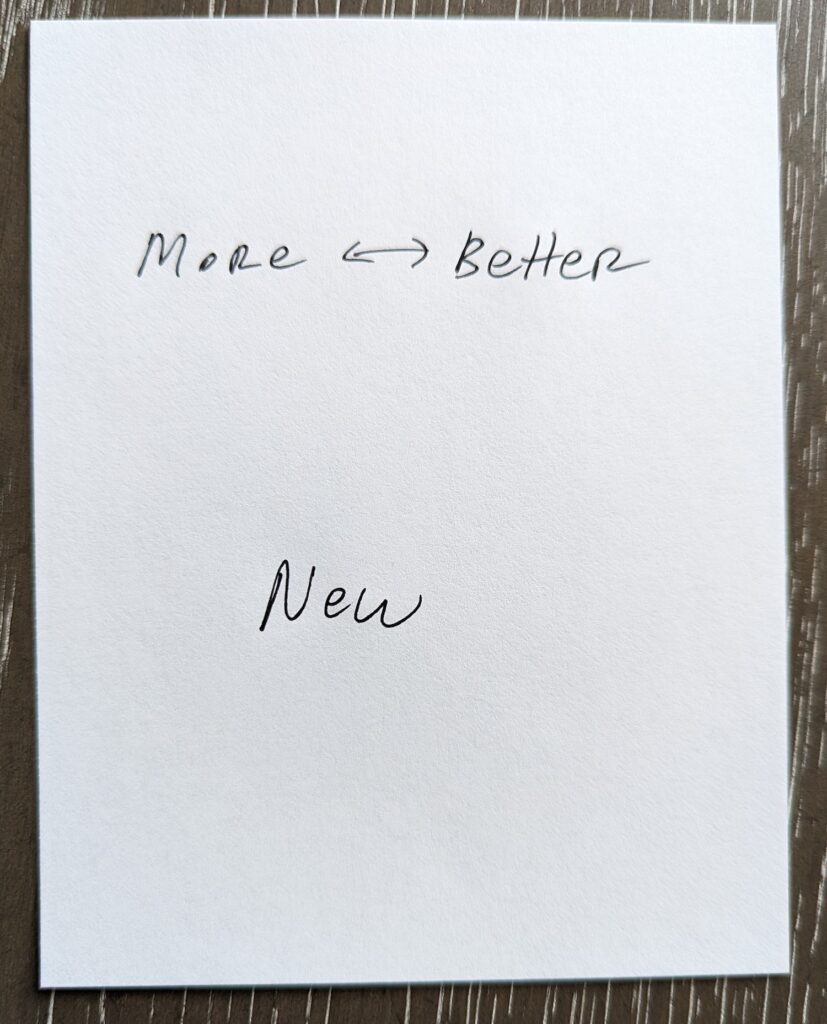 More ↔ Better
New